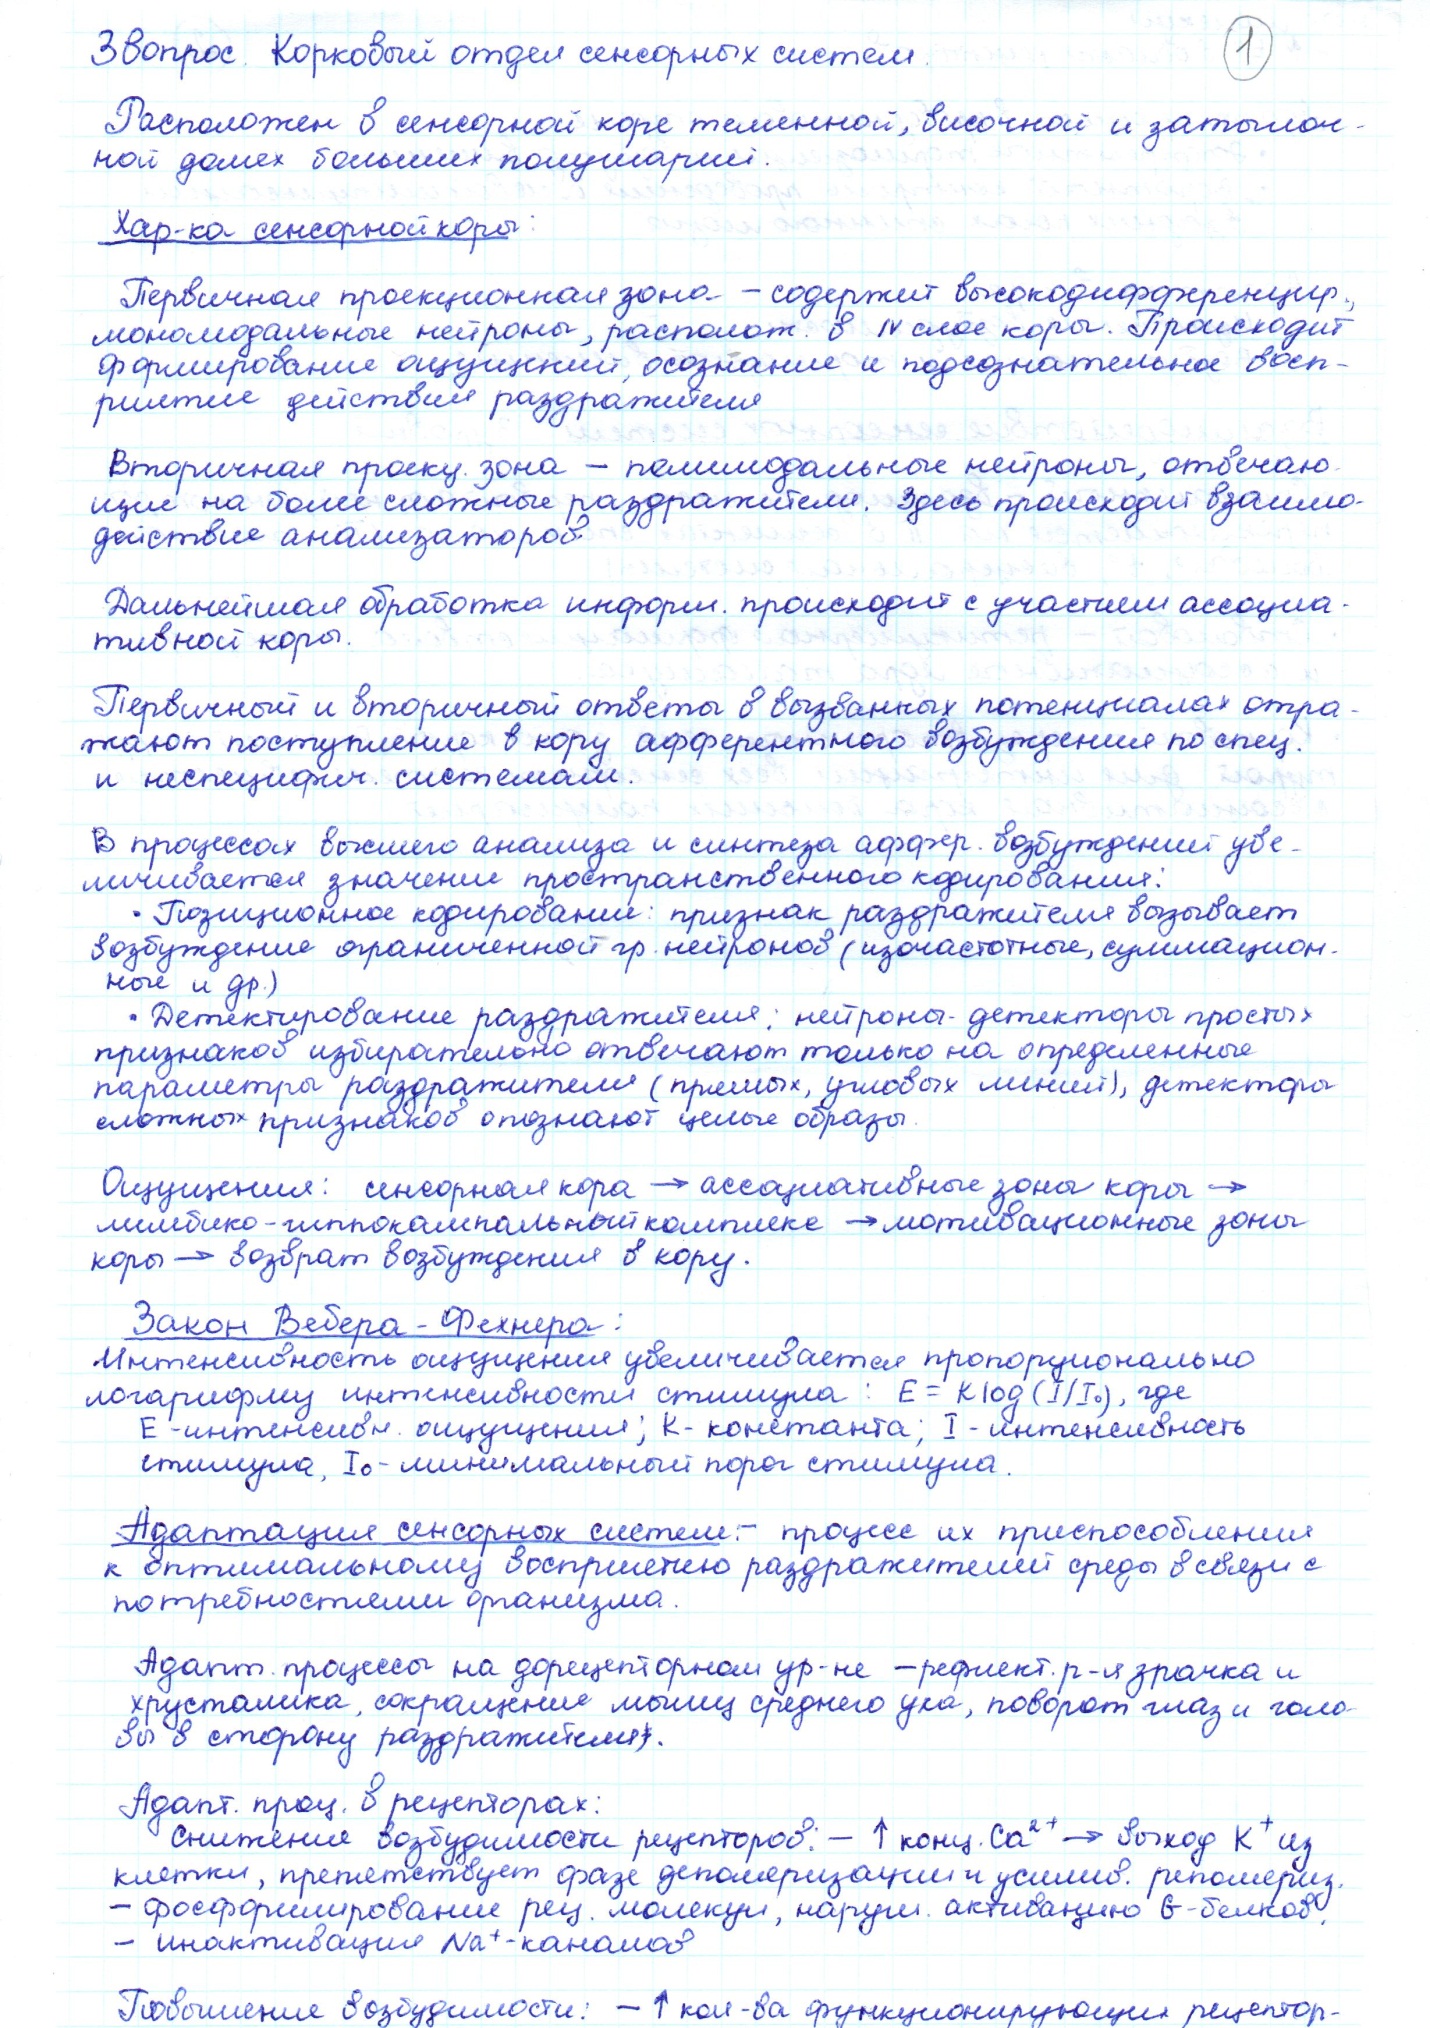 3 вопрос. Корковый отдел сенсорных систем.
1
Расположен в сенсорной коре теменной, височной и затылоч-
ной долях больших полушарий.
Хар-ка сенсорной коры:
Первичная проекционная зона – содержит высокодифференцир.,
мономодальные нейроны, располож. в IV слое коры. Происходит
формирование ощущений, осознание и подсознательное восп-
риятие действия раздражителя
Вторичная проекц. зона – полимодальные нейроны, отвечаю-
щие на более сложные раздражители. Здесь происходит взаимо-
действие анализаторов
Дальнейшая обработка информ. происходит с участием ассоциа-
тивной коры.
Первичный и вторичный ответы в вызванных потенциалах отра-
жают поступление в кору афферентного возбуждения по спец.
и неспецифич. системам.
В процессах высшего анализа и синтеза аффер. возбуждений уве-
личивается значение пространственного кодирования:
• Позиционное кодирование: признак раздражителя вызывает
возбуждение ограниченной гр. нейронов (изочастотные, суммацион-
ные и др.)
• Детектирование раздражителя: нейроны-детекторы простых
признаков избирательно отвечают только на определенные
параметры раздражителя (прямых, угловых линий), детекторы
сложных признаков опознают целые образы.
Ощущения: сенсорная кора → ассоциативные зоны коры →
лимбико-гиппокампальный комплекс → мотивационные зоны
коры → возврат возбуждения в кору.
Закон Вебера - Фехнера:
Интенсивность ощущения увеличивается пропорционально
логарифму интенсивности стимула: E = K log (I/I₀), где
E - интенсивн. ощущения; K - константа; I - интенсивность
стимула, I₀ - минимальный порог стимула.
Адаптация сенсорных систем: – процесс их приспособления
к оптимальному восприятию раздражителей среды в связи с
потребностями организма.
Адапт. процессы на дорецепторном ур-не – рефлект. р-я зрачка и
хрусталика, сокращение мышц среднего уха, поворот глаз и голо-
вы в сторону раздражителя.
Адапт. проц. в рецепторах:
Снижения возбудимости рецепторов: – ↑ конц. Ca²⁺ → выход K⁺ из
клетки, препятствует фазе деполяризации и усилив. реполяриз.
– фосфорилирование рец. молекул, наруш. активацию G-белков.
– инактивация Na⁺-каналов
Повышение возбудимости: – ↑ кол-ва функционирующих рецептор-